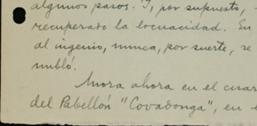 algunos pasos. Y, por supuesto,
recuperado la locuacidad. En
al ingenio, nunca, por suerte, se
nubló.
Mora ahora en el cuar
del Pabellón "Covadonga", en e